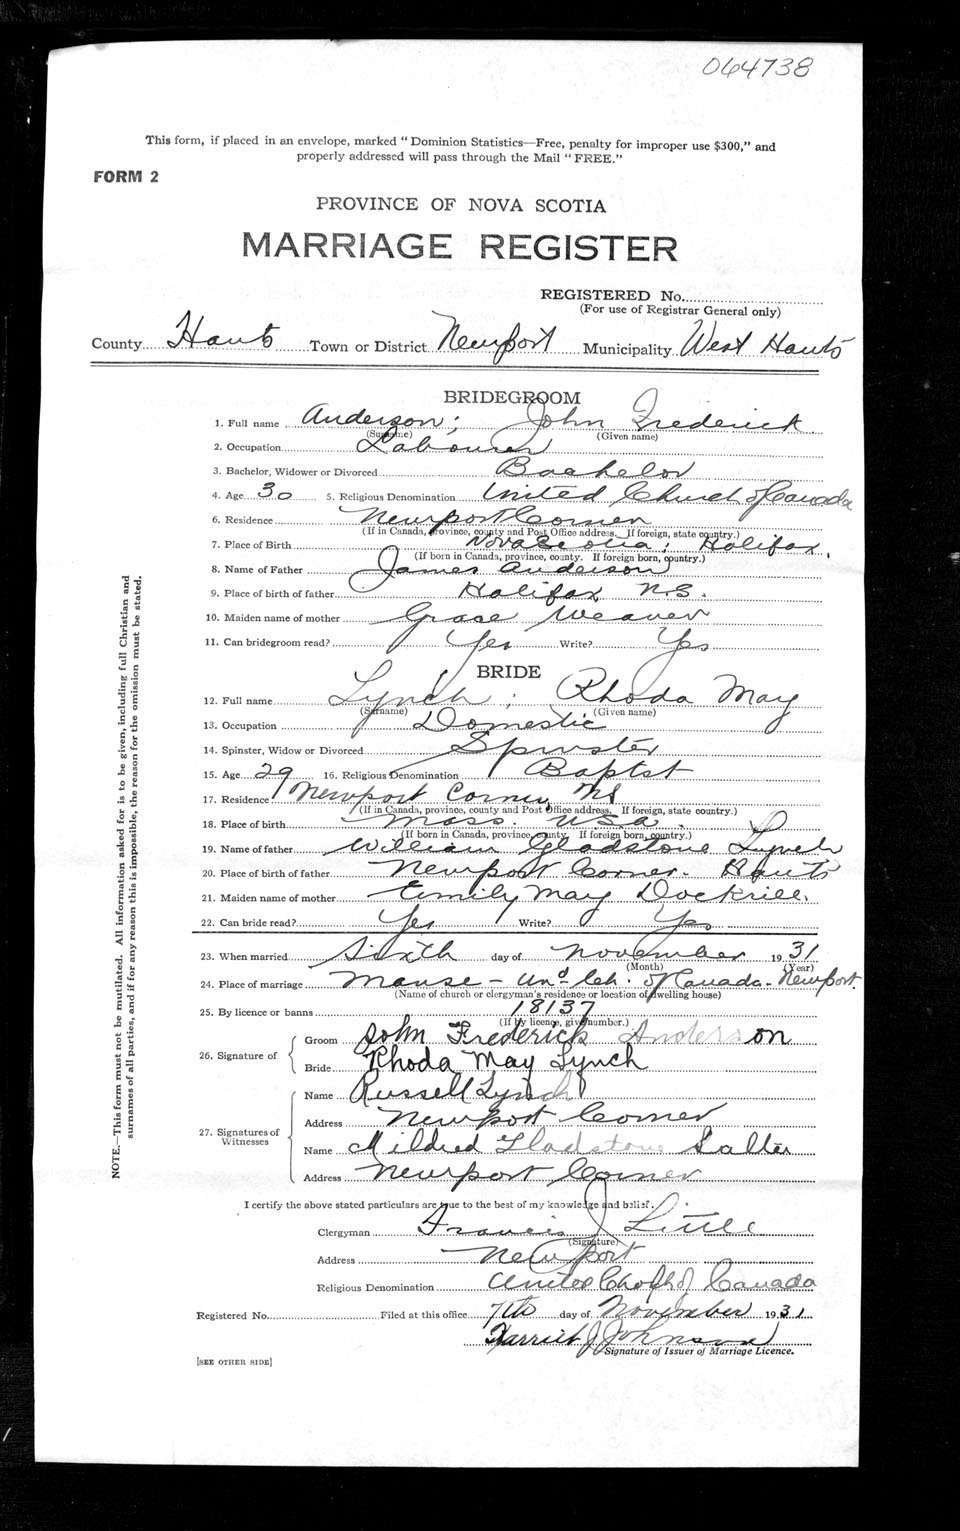 064738
This form, if placed in an envelope, marked " Dominion Statistics—Free, penalty for improper use $300," and
properly addressed will pass through the Mail " FREE."
FORM 2
PROVINCE OF NOVA SCOTIA
MARRIAGE REGISTER
REGISTERED No.
(For use of Registrar General only)
County Hants Town or District Newport Municipality West Hants
BRIDEGROOM
1. Full name Anderson; John Frederick
(Surname) (Given name)
2. Occupation Labourer
3. Bachelor, Widower or Divorced Bachelor
4. Age 30 5. Religious Denomination United Church of Canada
6. Residence Newport Corner
(If in Canada, province, county and Post Office address. If foreign, state country.)
7. Place of Birth Nova Scotia; Halifax.
(If born in Canada, province, county. If foreign born, country.)
8. Name of Father James Anderson
9. Place of birth of father Halifax N.S.
10. Maiden name of mother Grace Weaver
11. Can bridegroom read? Yes Write? Yes
BRIDE
12. Full name Lynch; Rhoda May
(Surname) (Given name)
13. Occupation Domestic
14. Spinster, Widow or Divorced Spinster
15. Age 29 16. Religious Denomination Baptst
17. Residence Newport Corner NS
(If in Canada, province, county and Post Office address. If foreign, state country.)
18. Place of birth Mass. U.S.A.
(If born in Canada, province, county. If foreign born, country.)
19. Name of father William Gladstone Lynch
20. Place of birth of father Newport Corner. Hants
21. Maiden name of mother Emily May Dockrill.
22. Can bride read? Yes Write? Yes
23. When married Sixth day of November 1931
(Month) (Year)
24. Place of marriage Manse - Und Ch. of Canada - Newport.
(Name of church or clergyman's residence or location of dwelling house)
25. By licence or banns 18137
(If by licence, give number.)
26. Signature of
Groom John Frederick Anderson
Bride Rhoda May Lynch
27. Signatures of Witnesses
Name Russell Lynch
Address Newport Corner
Name Mildred Gladstone Salter
Address Newport Corner
I certify the above stated particulars are true to the best of my knowledge and belief.
Clergyman Francis J Little
(Signature)
Address Newport
Religious Denomination United Ch of Canada
Registered No. Filed at this office 7th day of November 1931
Harriet J Johnson
Signature of Issuer of Marriage Licence.
[SEE OTHER SIDE]
NOTE.—This form must not be mutilated. All information asked for is to be given, including full Christian and
surnames of all parties, and if for any reason this is impossible, the reason for the omission must be stated.